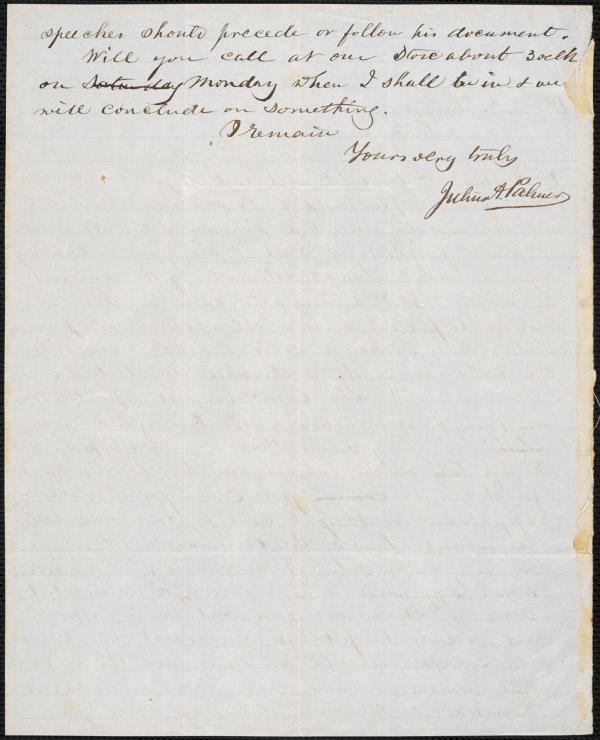 speeches should precede or follow his document.
Will you call at our Store about 3 oclk
on Saturday Monday when I shall be in & we
will conclude on something.
I remain
Yours very truly
Julius A. Palmer